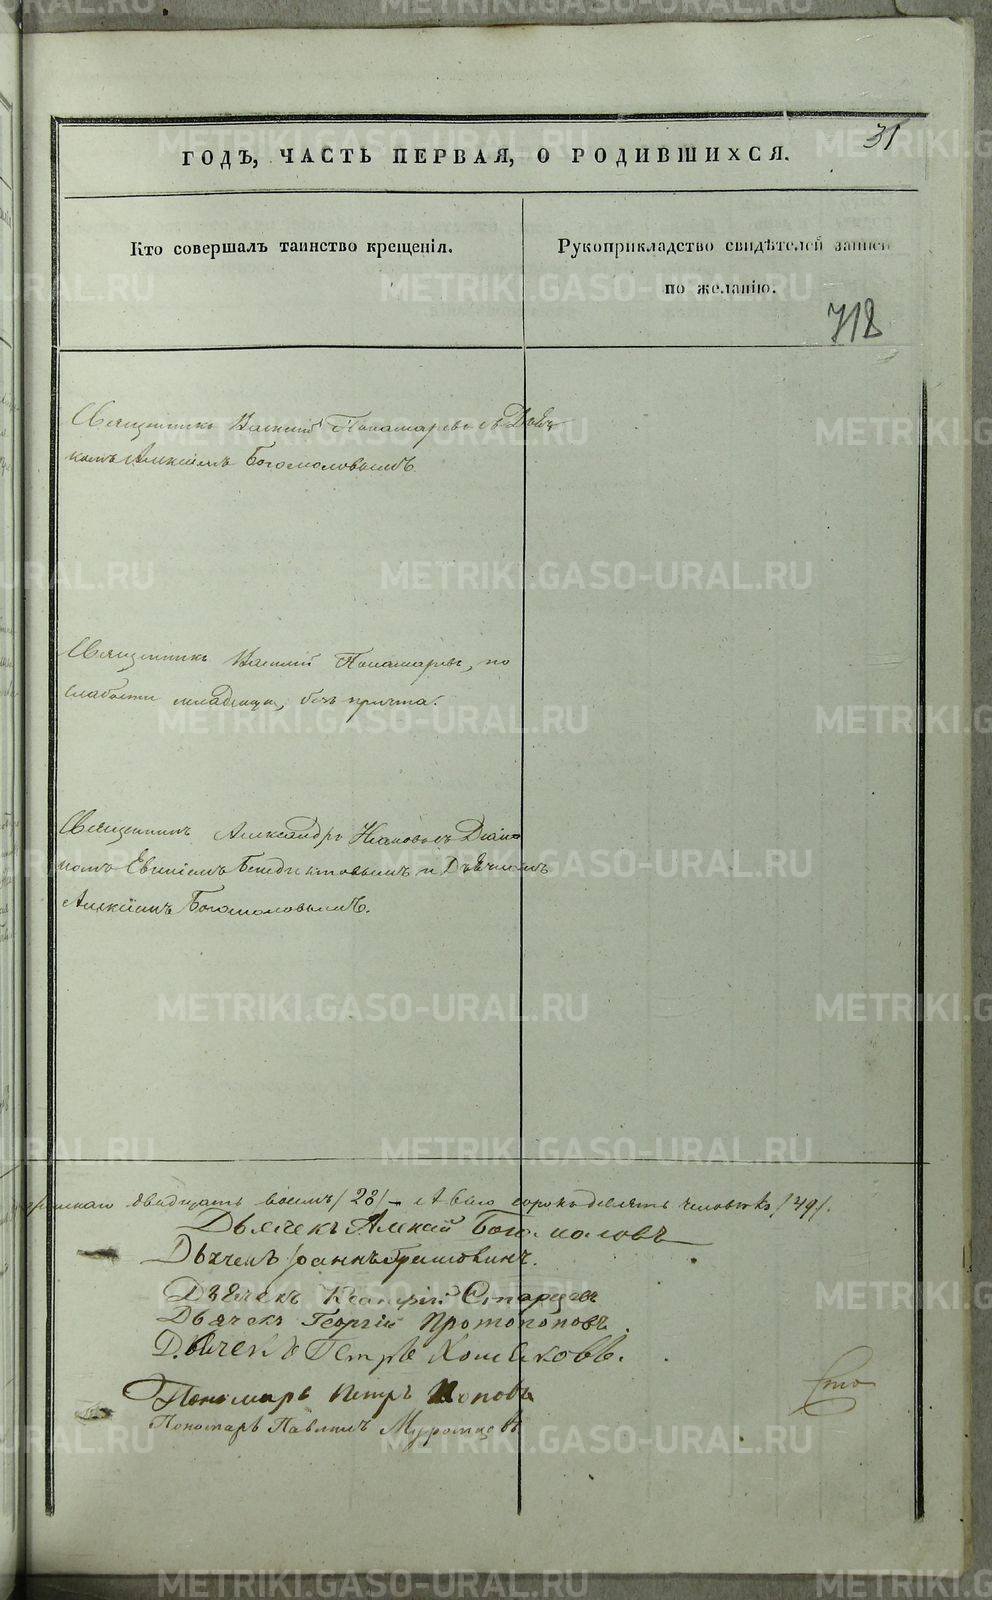 31
ГОДЪ, ЧАСТЬ ПЕРВАЯ, О РОДИВШИХСЯ.
Кто совершалъ таинство крещенія.
Рукоприкладство свидѣтелей записи
по желанію.
718
Священникъ Василій Пономаревъ съ Дьяч-
комъ Алексіемъ Богомоловымъ.
Священникъ Василій Пономаревъ, по
слабости младенца, безъ причта.
Священникъ Александръ Діако-
номъ Евгеніемъ Бенедиктовымъ и Дьячкомъ
Алексіемъ Богомоловымъ.
двадцать восемь /28/ — А всего сорокъ девять человѣкъ /49/.
Дьячекъ Алексій Богомоловъ
Дьячекъ Іоаннъ
Дьячекъ Старцевъ
Дьячекъ Георгій Протопоповъ.
Дьячекъ Петръ Хомяковъ.
Пономарь Петръ Поповъ
Пономарь Павлинъ Муромцовъ
METRIKI.GASO-URAL.RU